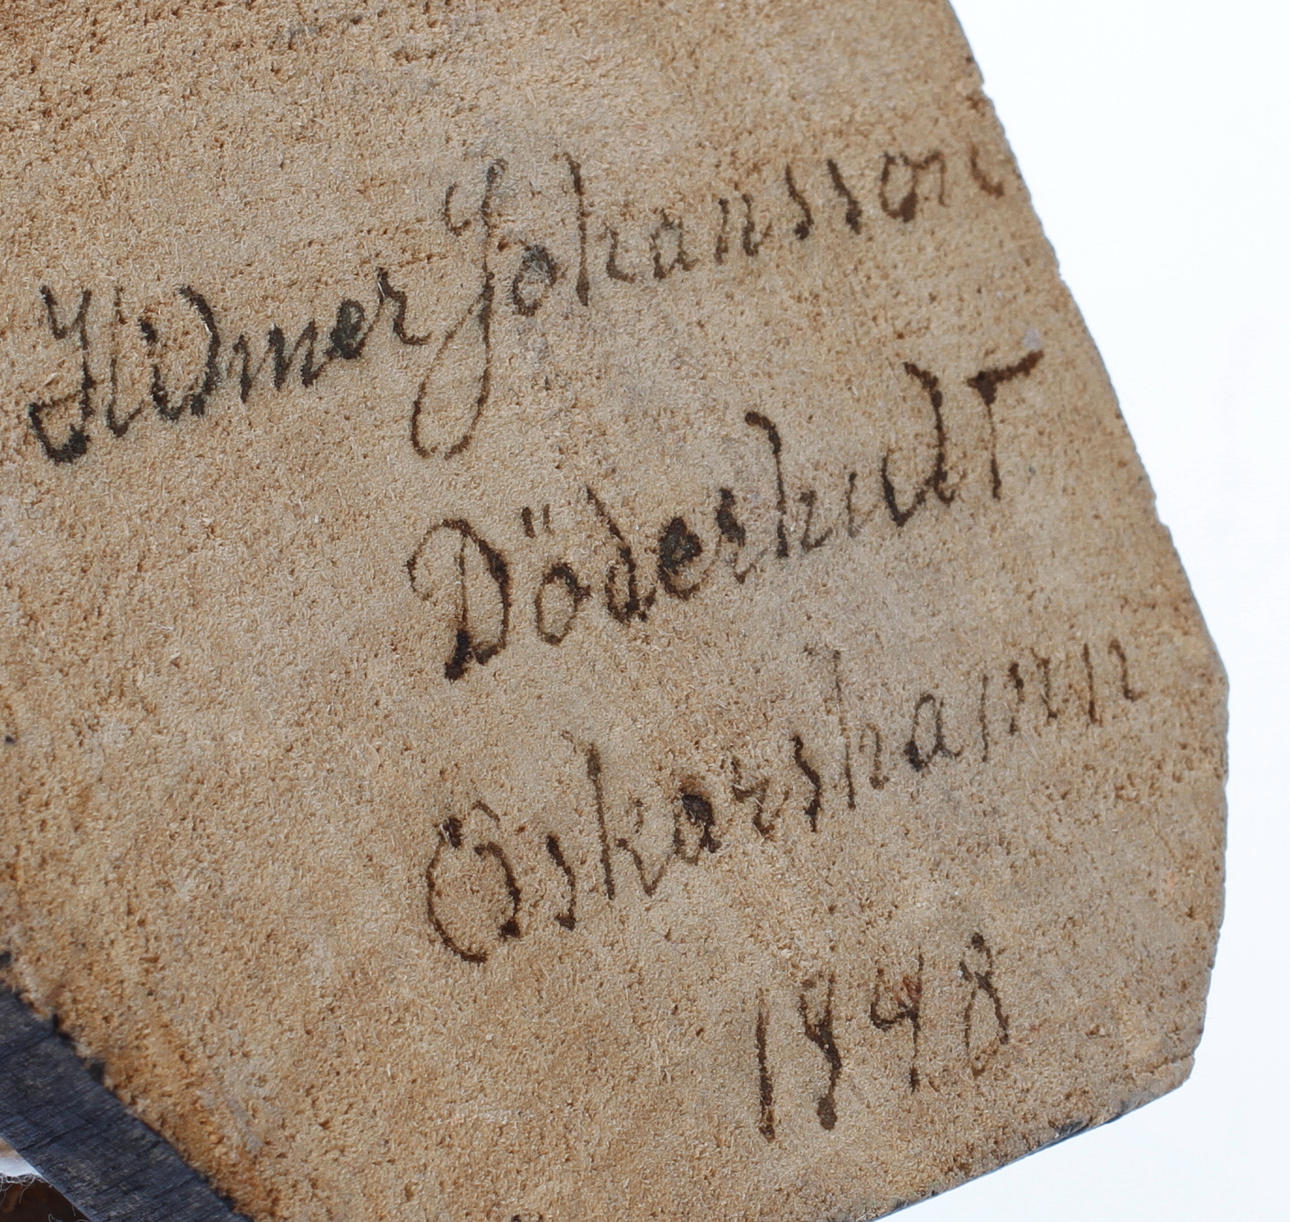 Hilmer Johansson
Döderhult
Oskarshamn
1948